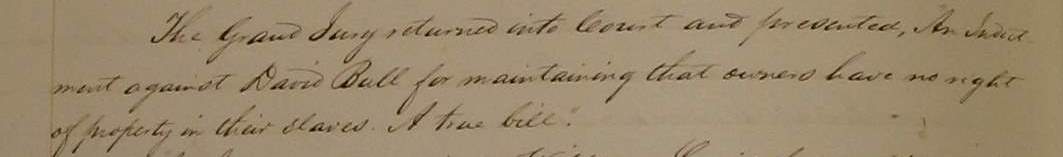 The Grand Jury returned into Court and presented, "An Indict-
ment against David Ball for maintaining that owners have no right
of property in their slaves. A true bill".